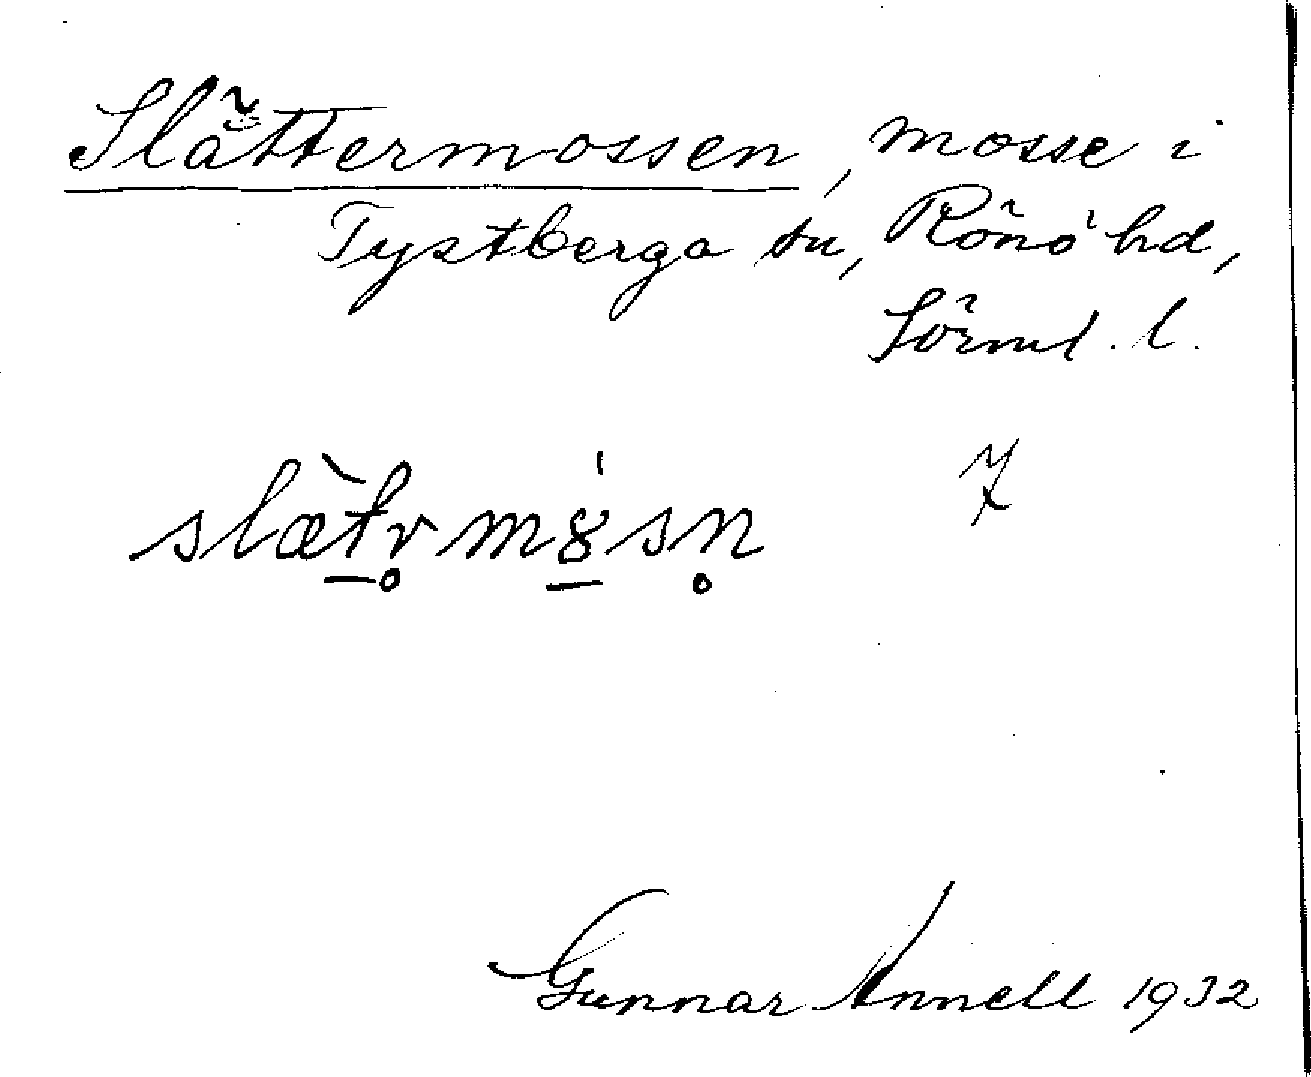 Slättermossen, mosse i
Tystberga sn, Rönö hd,
Sörml. l.
7
Gunnar Annell 1932